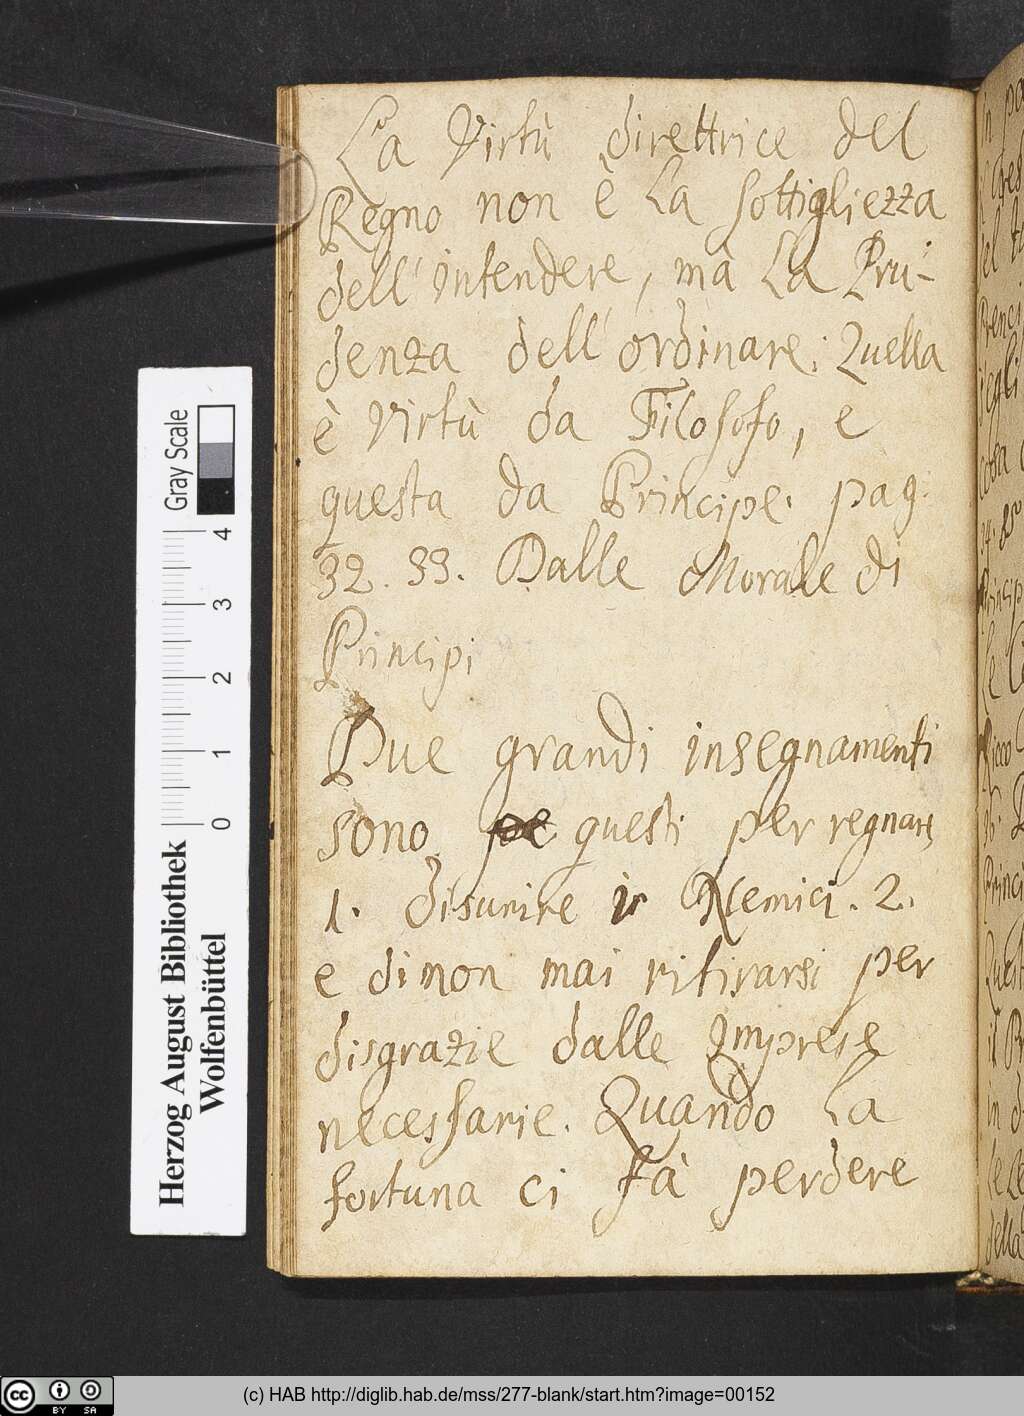 La Virtù direttrice del
Regno non è La sottigliezza
dell' intendere, mà La Pru-
denza dell' ordinare: Quella
è Virtù da Filosofo, e
questa da Principe. pag.
32. 33. Dalle Morale di
Principi
Due grandi insegnamenti
sono questi per regnare
1. disunire i Nemici. 2.
e di non mai ritirarsi per
disgrazie dalle Imprese
necessarie. Quando La
fortuna ci fà perdere
Gray Scale
0 1 2 3 4
Herzog August Bibliothek
Wolfenbüttel
cc BY SA
(c) HAB http://diglib.hab.de/mss/277-blank/start.htm?image=00152